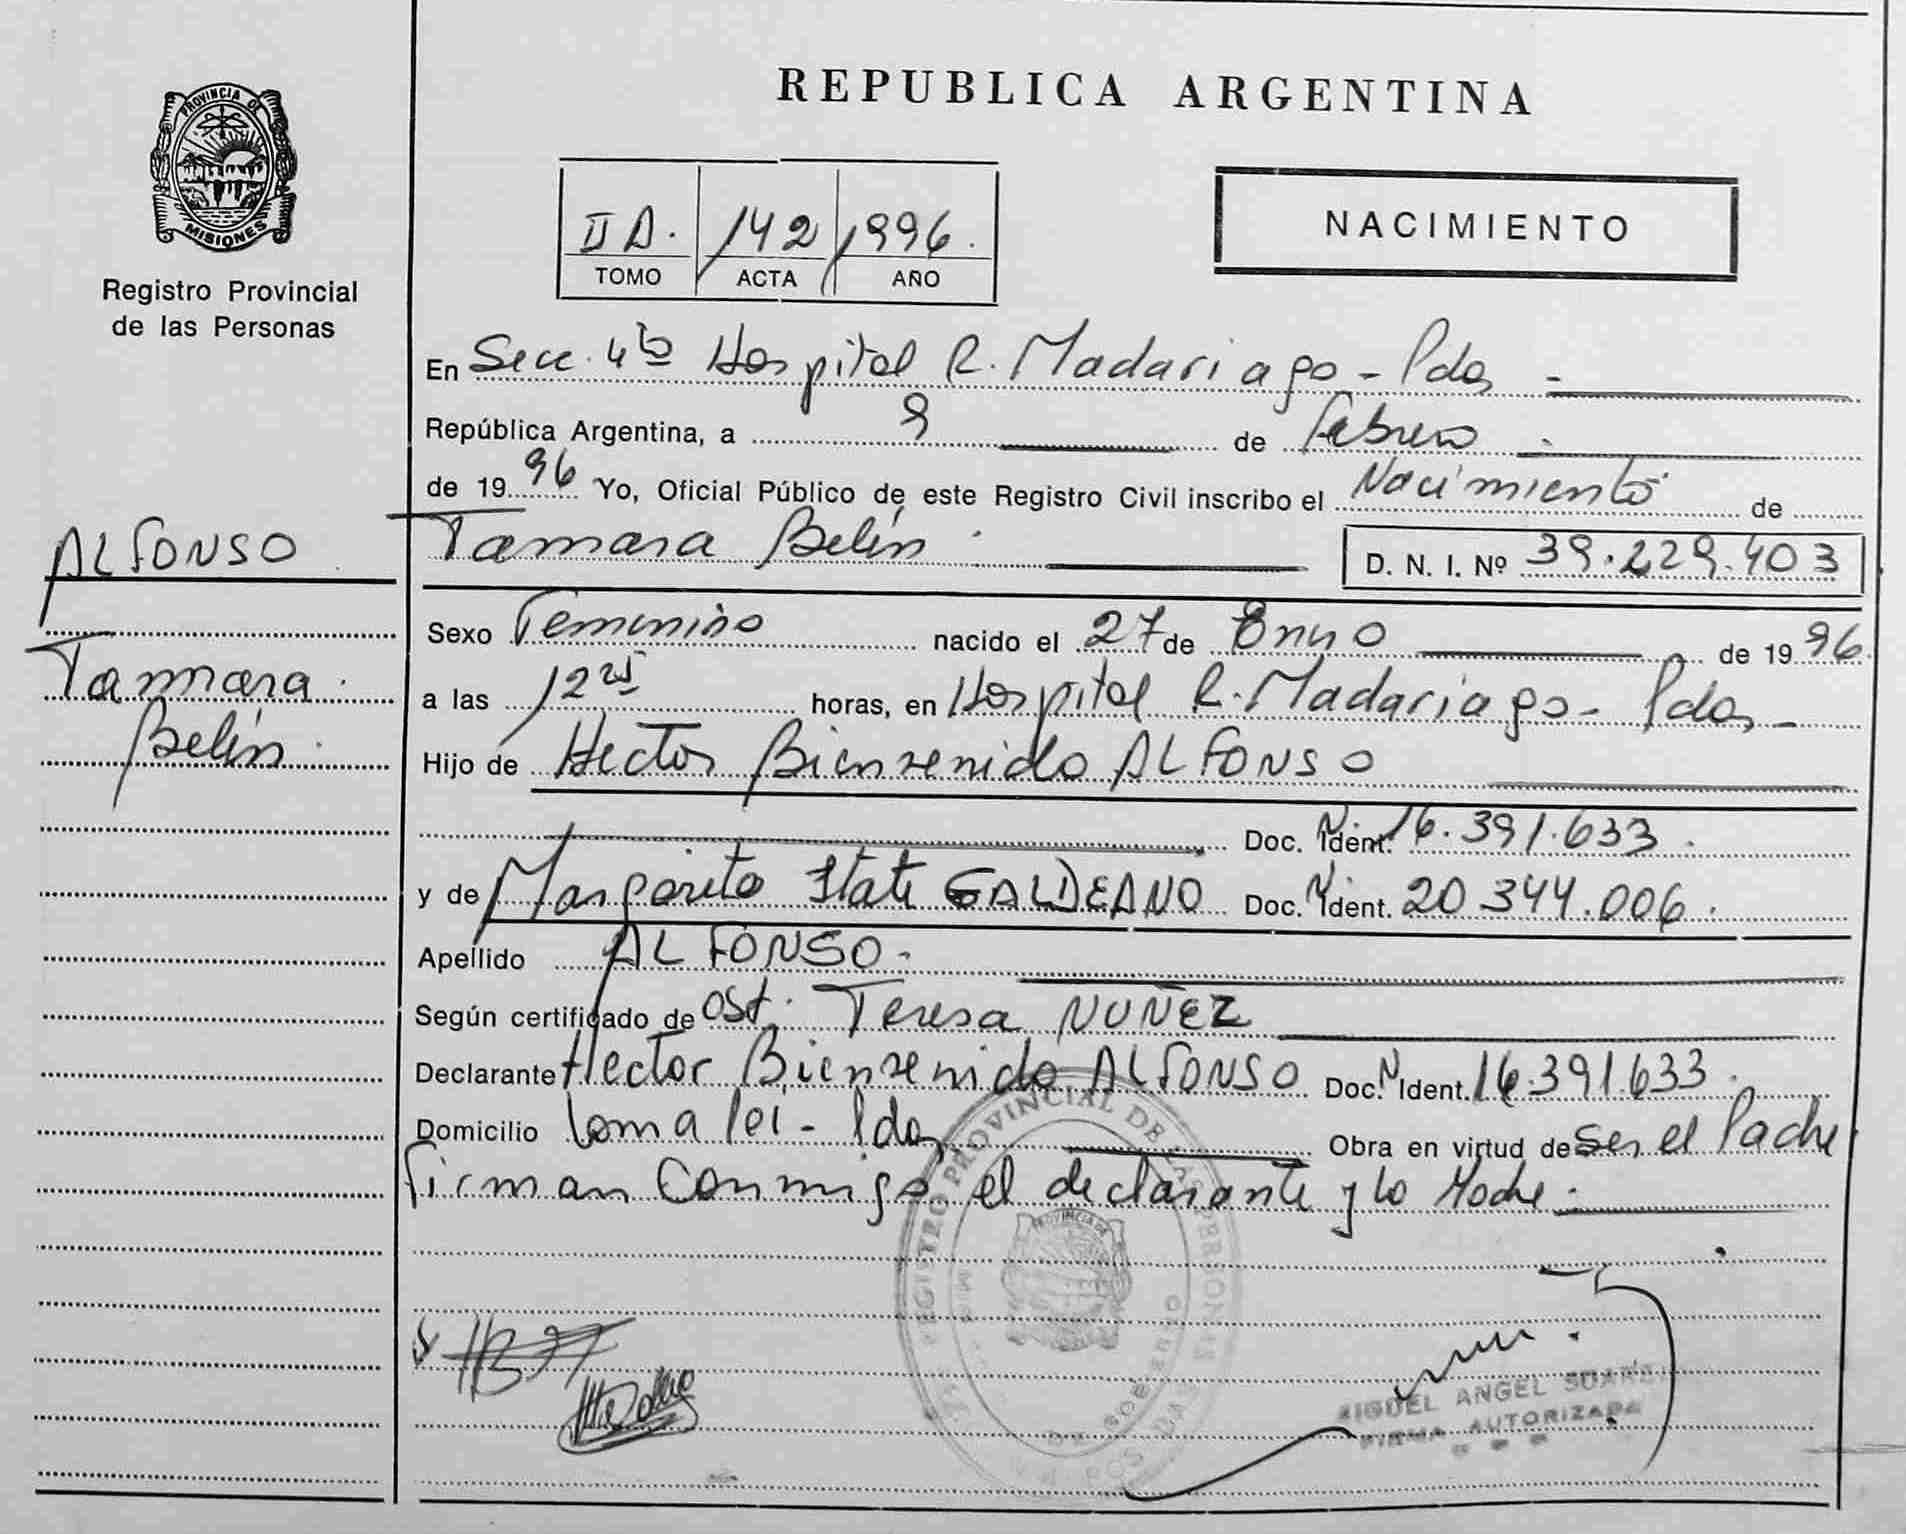 PROVINCIA DE
MISIONES
Registro Provincial
de las Personas
ALFONSO
Tamara
Belén
REPUBLICA ARGENTINA
II A. 142 1996.
TOMO ACTA AÑO
NACIMIENTO
En Secc. 4ta Hospital R. Madariaga - Pdas -
República Argentina, a 9 de febrero
de 1996 Yo, Oficial Público de este Registro Civil inscribo el Nacimiento de
Tamara Belén D. N. I. Nº 39.229.403
Sexo Femenino nacido el 27 de Enero de 1996
a las 12 horas, en Hospital R. Madariaga - Pdas -
Hijo de Hector Bienvenido ALFONSO
Doc. Ident. 16.391.633.
y de Margarita GALDEANO Doc. Ident. 20.344.006.
Apellido ALFONSO.
Según certificado de Ost. Teresa NUÑEZ
Declarante Hector Bienvenido ALFONSO Doc. Ident. 16.391.633.
Domicilio Loma Pdas Obra en virtud de ser el Padre
firman conmigo el declarante y la Madre.
REGISTRO PROVINCIAL DE LAS PERSONAS
PROVINCIA DE
MIGUEL ANGEL SUAREZ
FIRMA AUTORIZADA